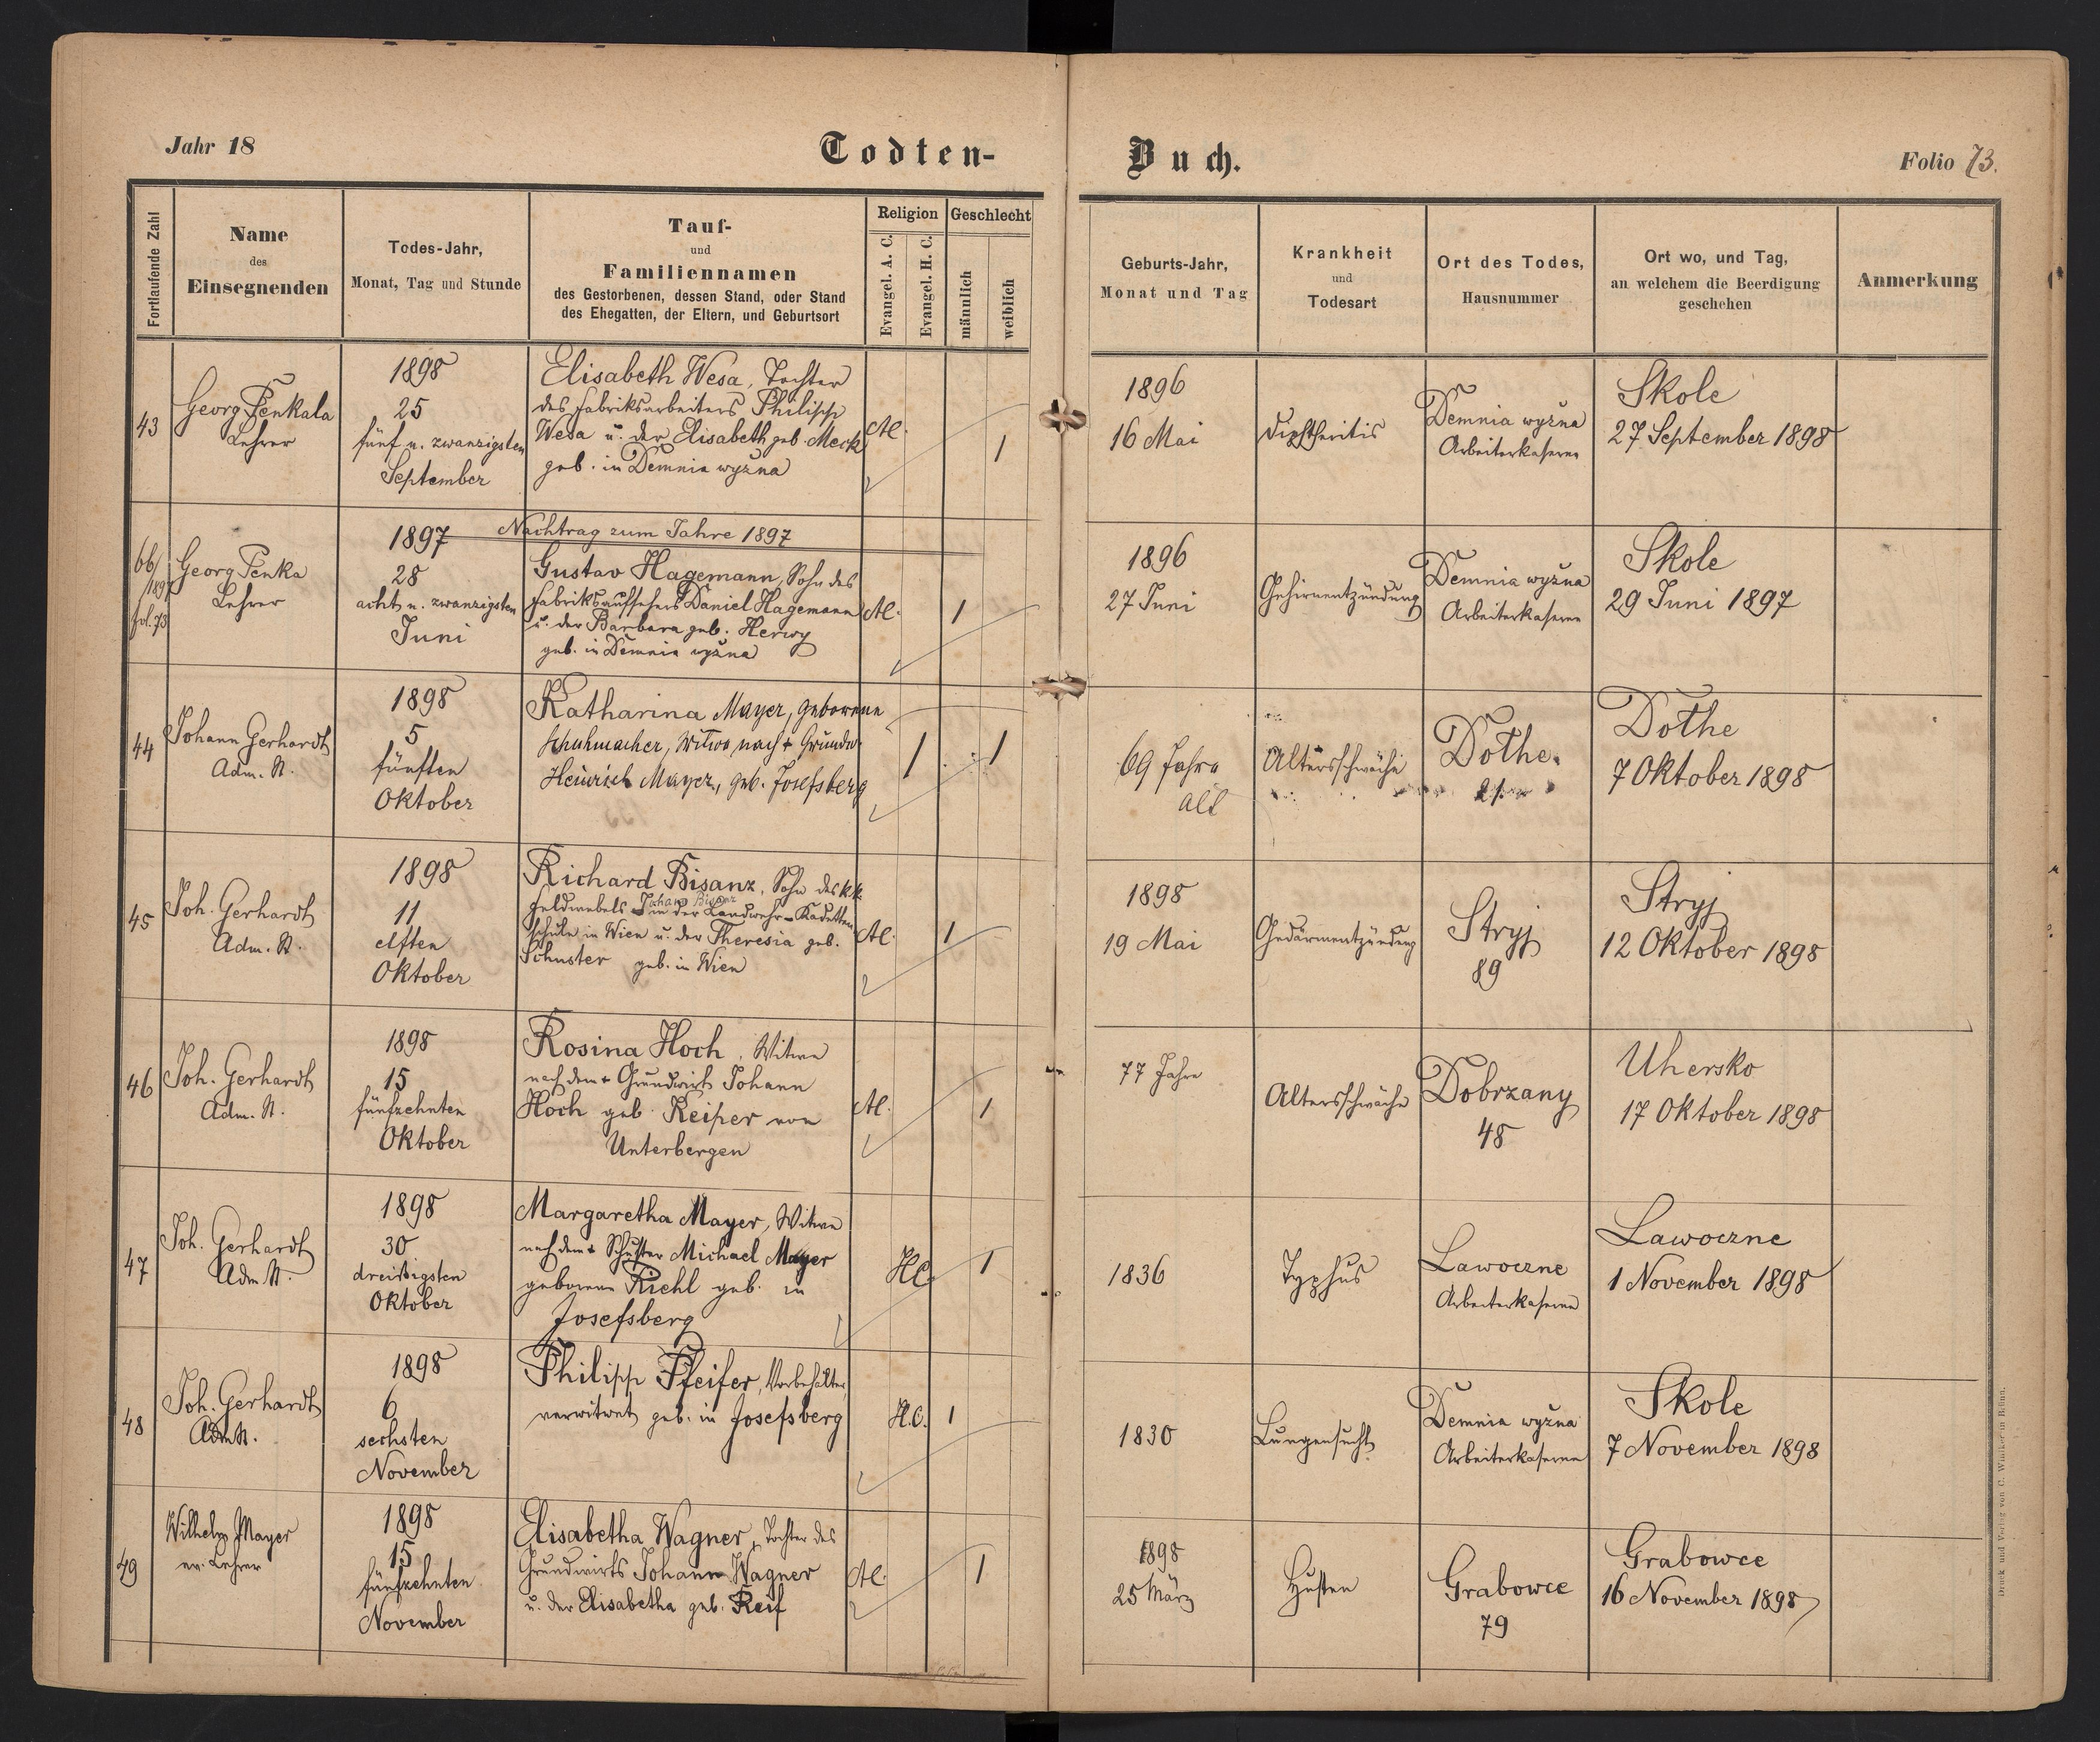 Jahr 18
Todten-
Buch.
Folio 73.
Fortlaufende Zahl
Name
des
Einsegnenden
Todes-Jahr,
Monat, Tag und Stunde
Tauf-
und
Familiennamen
des Gestorbenen, dessen Stand, oder Stand
des Ehegatten, der Eltern, und Geburtsort
Religion
Evangel. A. C.
Evangel. H. C.
Geschlecht
männlich
weiblich
Geburts-Jahr,
Monat und Tag
Krankheit
und
Todesart
Ort des Todes,
Hausnummer
Ort wo, und Tag,
an welchem die Beerdigung
geschehen
Anmerkung
43
Georg Penkala
Lehrer
1898
25
fünf u. zwanzigsten
September
Elisabeth Wesa, Tochter
des Fabriksarbeiters Philipp
Wesa u. der Elisabeth geb. Meck
geb. in Demnia wyżna
AC.
1
1896
16 Mai
Diphtheritis
Demnia wyżna
Arbeiterkaserne
Skole
27 September 1898
Nachtrag zum Jahre 1897
66/
1897
fol. 73
Georg Penka
Lehrer
1897
28
acht u. zwanzigsten
Juni
Gustav Hagemann, Sohn des
Fabriksaufsehers Daniel Hagemann
u. der Barbara geb. Herwy
geb. in Demnia wyżna
AC.
1
1896
27 Juni
Gehirnentzündung
Demnia wyżna
Arbeiterkaserne
Skole
29 Juni 1897
44
Johann Gerhardt
Adm. St.
1898
5
fünften
Oktober
Katharina Mayer, geborene
Schuhmacher, Witwe nach + Grundw.
Heinrich Mayer, geb. Josefsberg
1
1
69 Jahre
alt
Altersschwäche
Dothe.
21.
Dothe
7 Oktober 1898
45
Joh. Gerhardt
Adm. St.
1898
11
elften
Oktober
Richard Bisanz, Sohn des k.k.
Johann Bisanz
Feldwebels in der Landwehr-Kadetten
schule in Wien u. der Theresia geb.
Schuster geb. in Wien
AC.
1
1898
19 Mai
Gedärmentzündung
Stryj
89
Stryj
12 Oktober 1898
46
Joh. Gerhardt
Adm. St.
1898
15
fünfzehnten
Oktober
Rosina Hoch, Witwe
nach dem + Grundwirt Johann
Hoch geb. Keiper von
Unterbergen
AC.
1
77 Jahre
Altersschwäche
Dobrzany
48
Uhersko
17 Oktober 1898
47
Joh. Gerhardt
Adm. St.
1898
30
dreißigsten
Oktober
Margaretha Mayer, Witwe
nach dem + Schuster Michael Mayer
geborene Riehl geb. in
Josefsberg
HC.
1
1836
Typhus
Lawoczne
Arbeiterkaserne
Lawoczne
1 November 1898
48
Joh. Gerhardt
Adm. St.
1898
6
sechsten
November
Philipp Pfeifer, Vorbehalter,
verwitwet geb. in Josefsberg
H.C.
1
1830
Lungensucht
Demnia wyżna
Arbeiterkaserne
Skole
7 November 1898
49
Wilhelm Mayer
ev. Lehrer
1898
15
fünfzehnten
November
Elisabetha Wagner, Tochter des
Grundwirts Johann Wagner
u. der Elisabetha geb. Reif
AC.
1
1898
25 März
Husten
Grabowce
79
Grabowce
16 November 1898
Druck und Verlag von C. Winiker in Brünn.